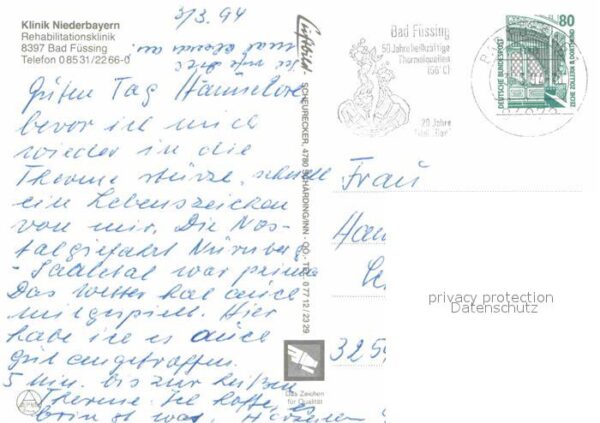 Klinik Niederbayern
Rehabilitationsklinik
8397 Bad Füssing
Telefon 0 85 31/22 66-0
3/3. 94
Guten Tag Hannelore
bevor ich mich
wieder in die
Therme stürze, schnell
ein Lebenszeichen
von mir. Die Nos-
talgiefahrt Nürnberg
- Saaletal war prima
Das Wetter hat auch
mitgespielt. Hier
habe ich es auch
gut angetroffen.
5 Min. bis zur heißen
Therme. Ich hoffe, es
bringt was. Herzlichen
Luftbild- SCHEURECKER, 4780 SCHÄRDING/INN - OÖ. - TEL. 0 77 12 / 23 29
Das Zeichen
für Qualität
Bad Füssing
50 Jahre heilkräftige
Thermalquellen
(56°C)
20 Jahre
80
DEUTSCHE BUNDESPOST
ZECHE ZOLLERN II, DORTMUND
Frau
Han
3259
privacy protection
Datenschutz